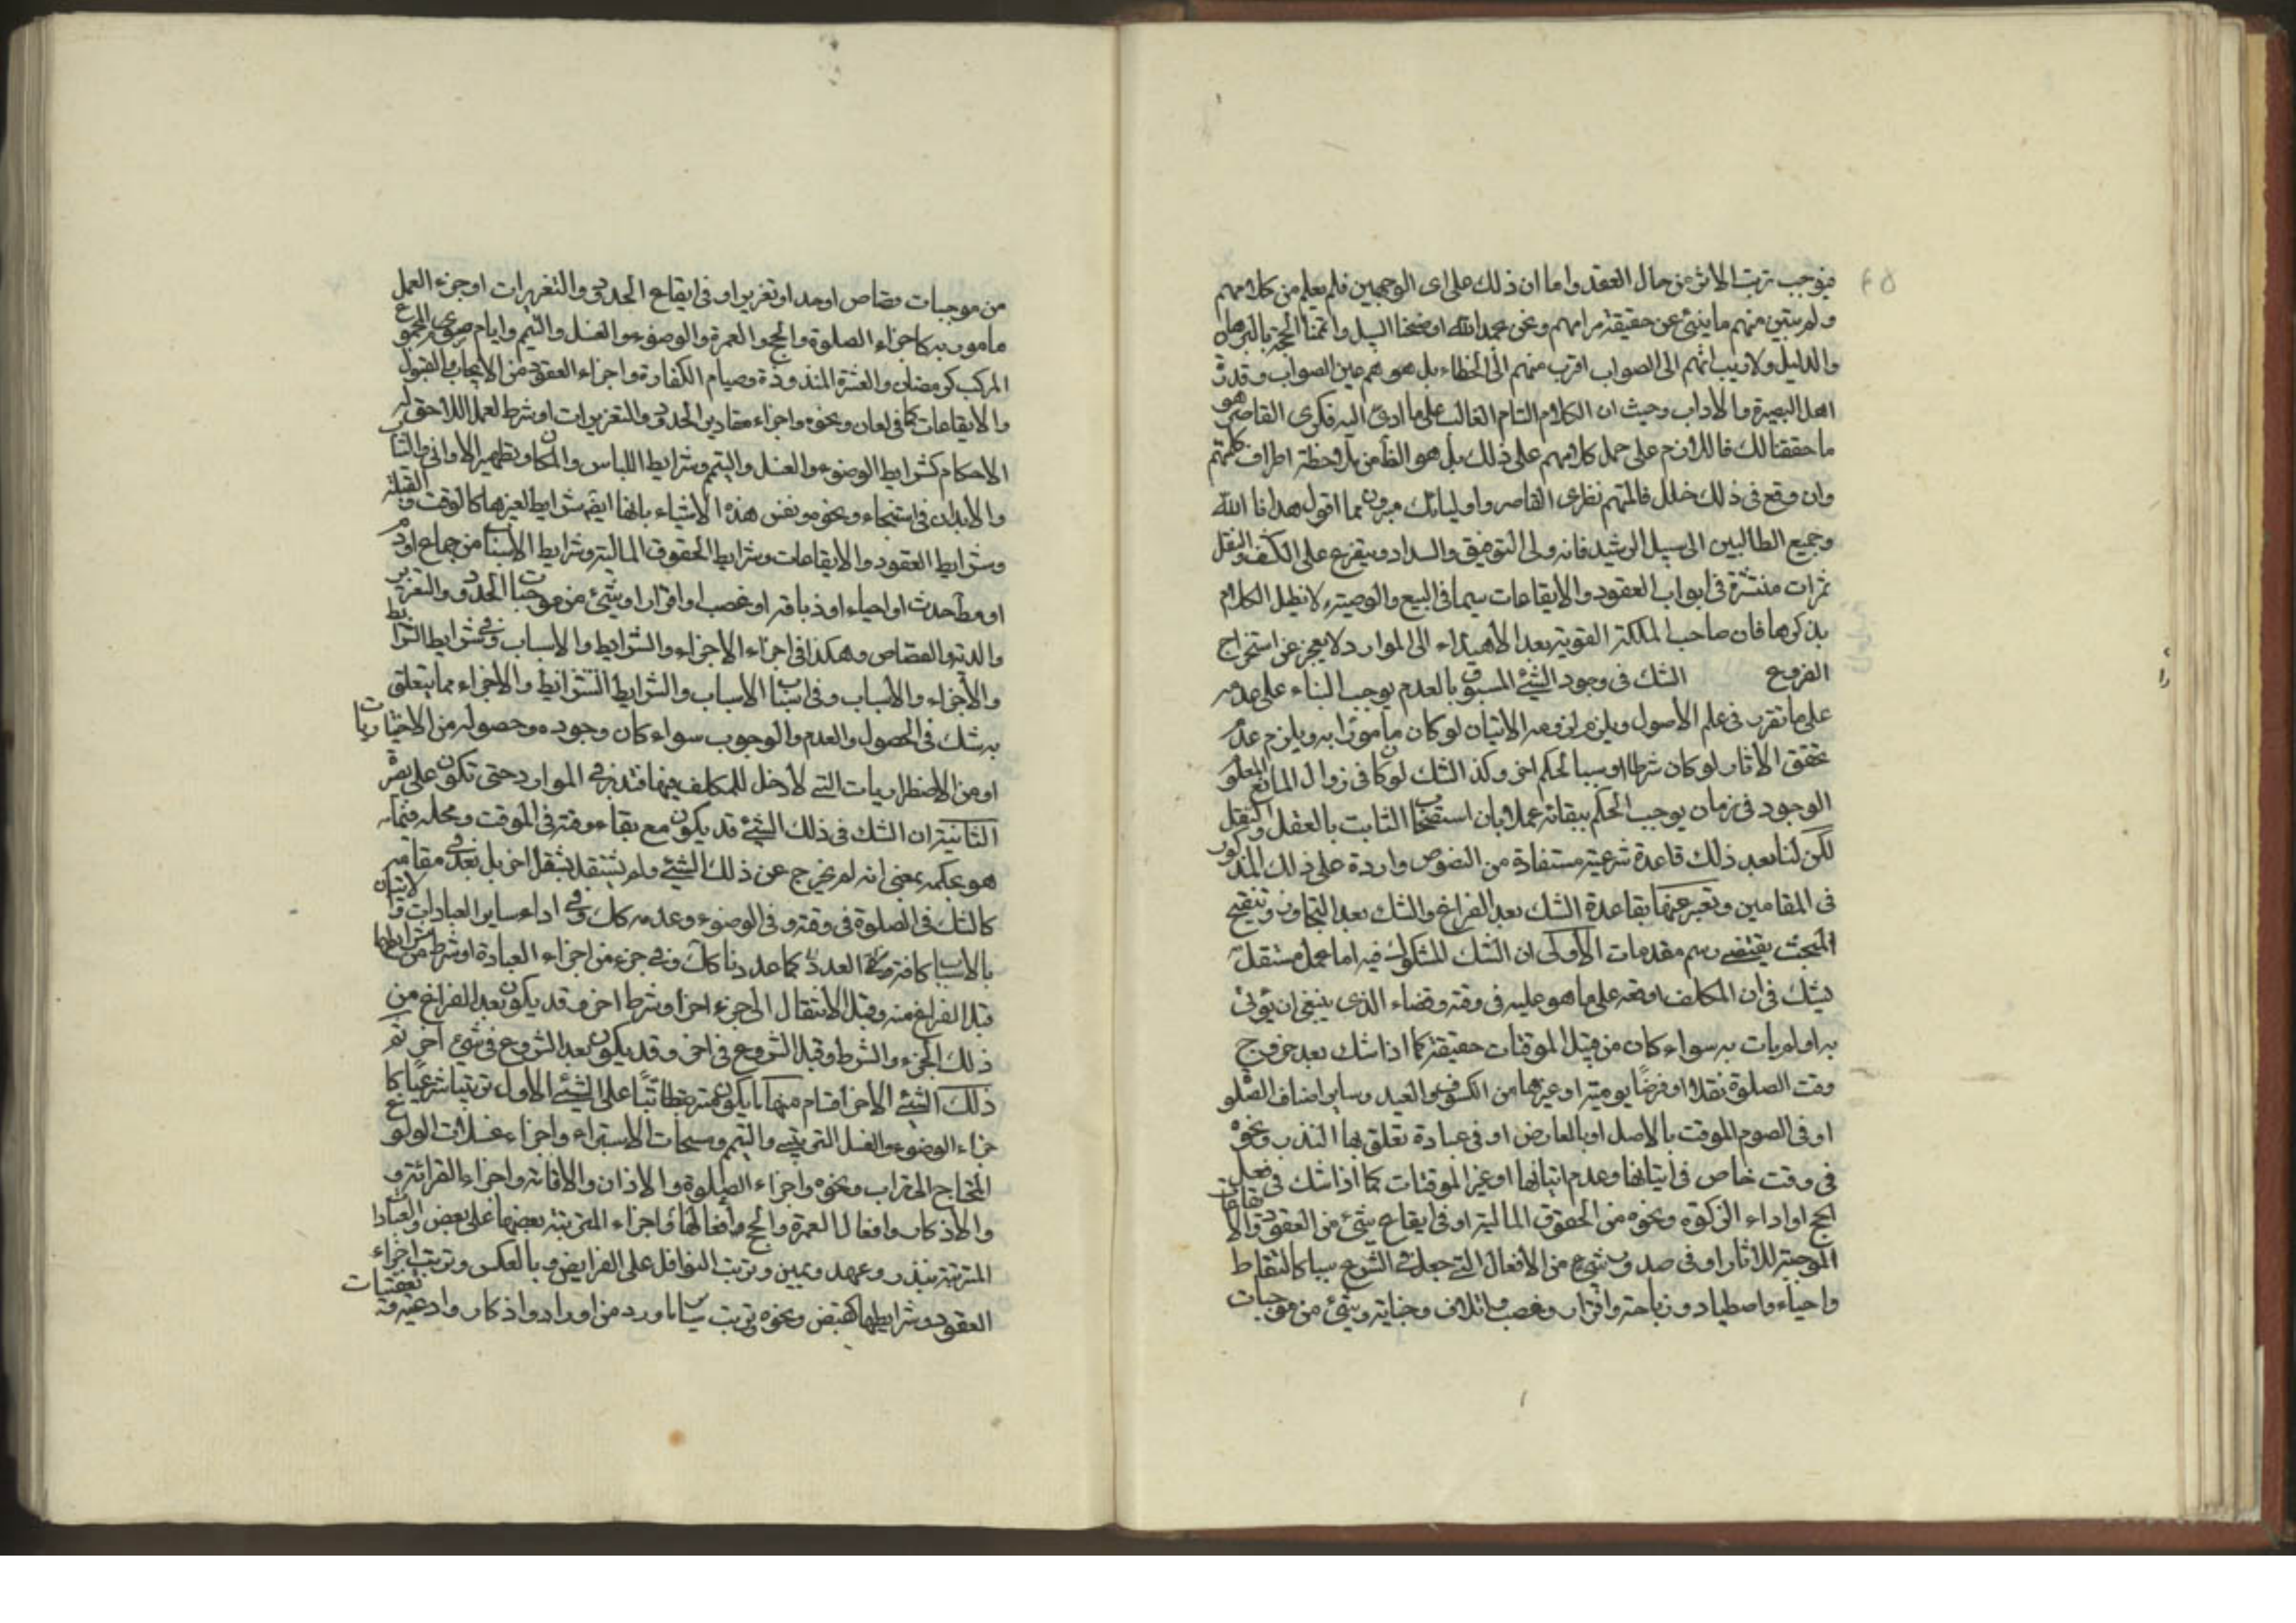 فيوجب ترتب الاثر من حال العقد واما ان ذلك على اى الوجهين فلم يعلم من كلامهم
ولم يتبين منهم ما ينبئ عن حقيقة مرامهم ونحن بحمد الله اوضحنا السبيل واتممنا الحجة بالبرهان
والدليل ولا ريب انهم الى الصواب اقرب منهم الى الخطاء بل هو هم عين الصواب وقدوة
اهل البصيرة والاداب وحيث ان الكلام التام الغالب على ما ادى اليه فكرى القاصر هو
ما حققنا لك فاللازم على حمل كلامهم على ذلك بل هو الظ من ملاحظة اطراف كلمتهم
وان وقع فى ذلك خلل فالمتهم نظرى القاصر واوليائك مبرون مما اقول هدانا الله
وجميع الطالبين الى سبيل الرشد فانه ولى التوفيق والسداد ويتفرع على الكشف والنقل
ثمرات منتشرة فى ابواب العقود والايقاعات سيما فى البيع والوصية ولا نطيل الكلام
بذكرها فان صاحب الملكة القوية بعد الاهتداء الى الموارد لا يعجز عن استخراج
الفروع الشك فى وجود الشئ المسبوق بالعدم يوجب البناء على عدمه
على ما تقرر فى علم الاصول ويلزم لزومه الاتيان لو كان مأمورا به ويلزم عدم
تحقق الاثار لو كان شرطا او سببا لحكم اخر وكذا الشك لو كان فى زوال المانع المعلوم
الوجود فى زمان يوجب الحكم ببقائه عملا بان استصحاب الثابت بالعقل والنقل
لكن لنا بعد ذلك قاعدة شرعية مستفادة من النصوص واردة على ذلك المذكور
فى المقامين ونعبر عنها بقاعدة الشك بعد الفراغ والشك بعد التجاوز وتنقيح
المبحث يقتضى رسم مقدمات الاولى ان الشك المشكوك فيه اما عمل مستقل
يشك فى ان المكلف اوقعه على ما هو عليه فى وقته وقضاء الذى ينبغى ان يؤتى
به او لم يات به سواء كان من قبيل الموقتات حقيقة كما اذا شك بعد خروج
وقت الصلوة نفلا او فرضا يومية او غيرها من الكسوف والعيد وساير اصناف الصلوة
او فى الصوم الموقت بالاصل او بالعارض او فى عبادة تعلق بها النذر ونحوه
فى وقت خاص فى اتيانها وعدم اتيانها او غير الموقتات كما اذا شك فى فعل
الحج او اداء الزكوة ونحوه من الحقوق المالية او فى ايقاع شئ من العقود والايقاعات
الموجبة للاثار او فى صدور شئ من الافعال التى جعله الشرع سببا كالتقاط
واحياء واصطياد وذباحة واقرار وغصب واتلاف وجناية وشئ من موجبات
من موجبات قصاص او حد او تعزير او فى ايقاع الحدود والتعزيرات او جزء العمل
مامور به كاجزاء الصلوة والحج والعمرة والوضوء والغسل والتيم وايام صوم المجموع
المركب كرمضان والعشرة المنذورة وصيام الكفارة واجزاء العقود من الايجاب والقبول
والايقاعات كما فى لعان ونحوه واجزاء مقادير الحدود والتعزيرات او شرط لعمل اللاحق له
الاحكام كشرايط الوضوء والغسل والتيم وشرايط اللباس والمكان وتطهير الاوانى والثياب
والابدان فى استنجاء ونحوه ونفس هذه الاشياء بانها ايضا شرايط لغيرها كالوقت والقبلة
وشرايط العقود والايقاعات وشرايط الحقوق المالية وشرايط الاسباب من جماع او دم
او مطلحدث او احياء او ذباقة او غصب او اقرار او شئ من موجبات الحدود والتعزير
والدية والقصاص وهكذا فى اجزاء الاجزاء والشرايط والاسباب وفى شرايط الشرايط
والاجزاء والاسباب وفى اسباب الاسباب والشرايط الشرايط والاجزاء مما يتعلق
به شك فى الحصول والعدم والوجوب سواء كان وجوده وحصوله من الاختياريات
او من الاضطراريات التى لا دخل للمكلف فيها فتدبر فى الموارد حتى تكون على بصيرة
الثانية ان الشك فى ذلك الشئ قد يكون مع بقاء وقته فى الموقت ومحله فيما
هو بحكمه بمعنى انه لم يخرج عن ذلك الشئ ولم يشتغل بشغل اخر بل بعد فى مقامه
كالشك فى الصلوة فى وقته وفى الوضوء وعدمه كك وفى اداء ساير العبادات والاتيان
بالاسباب كافة وكافة العدد كما عددنا كك وفى جزء من اجزاء العبادة او شرط من شرايطها
قبل الفراغ منه وقبل الانتقال الى جزء اخر او شرط اخر وقد يكون بعد الفراغ من
ذلك الجزء والشرط وقبل الشروع فى اخر وقد يكون بعد الشروع فى شئ اخر ثم
ذلك الشئ الاخر اقسام منها ما يكون مترتبا على الشئ الاول ترتيبا شرعيا كا
جزاء الوضوء والغسل الترتيبى والتيم ومسحات الاستبراء واجزاء غسلات الولوغ
المحتاج الى تراب ونحوه واجزاء الصلوة والاذان والاقامة واجزاء القرائة و
والاذكار وافعال العمرة والحج وافعالها واجزاء المترتبة بعضها على بعض والعبادات
المترتبة بنذر وعهد ويمين وترتب النوافل على الفرايض وبالعكس وترتب اجزاء
العقود وشرايطها كقبض ونحوه وترتب ساير ما ورد من اوراد واذكار وادعية وتعقيبات